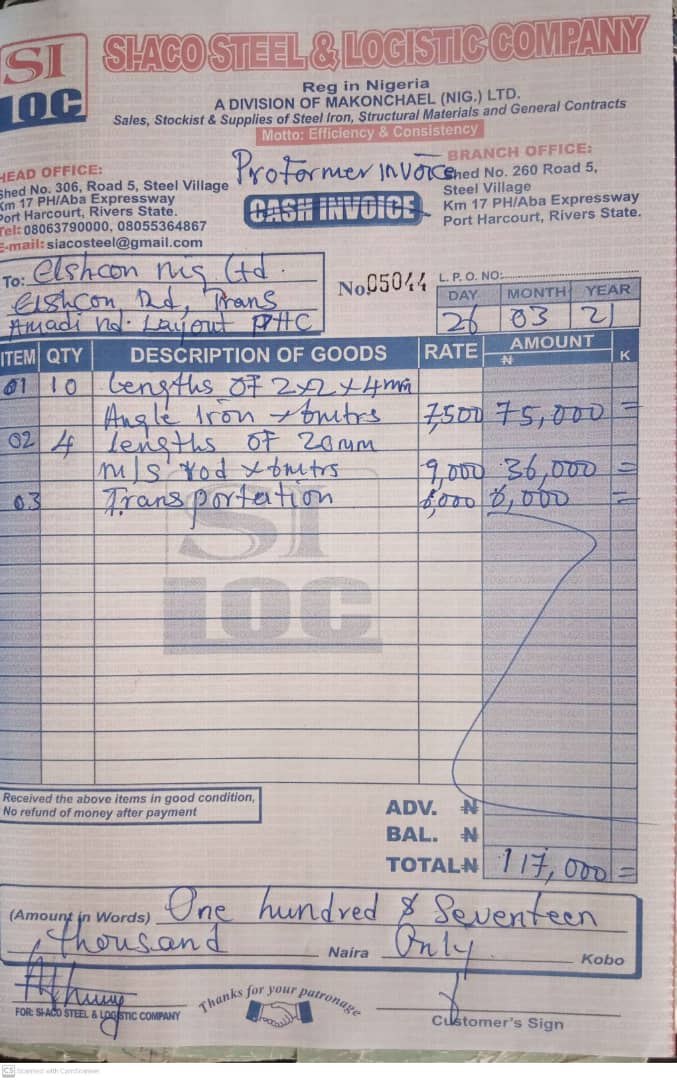 SI
LOC
SI-ACO STEEL & LOGISTIC COMPANY
Reg in Nigeria
A DIVISION OF MAKONCHAEL (NIG.) LTD.
Sales, Stockist & Supplies of Steel Iron, Structural Materials and General Contracts
Motto: Efficiency & Consistency
HEAD OFFICE:
Shed No. 306, Road 5, Steel Village
Km 17 PH/Aba Expressway
Port Harcourt, Rivers State.
Tel: 08063790000, 08055364867
E-mail: siacosteel@gmail.com
Proformer invoice
CASH INVOICE
BRANCH OFFICE:
Shed No. 260 Road 5,
Steel Village
Km 17 PH/Aba Expressway
Port Harcourt, Rivers State.
To: Elshcon nig Ltd.
Elshcon Rd, Trans
Amadi nd. Layout PHC
No. 05044
L.P.O. NO:
DAY MONTH YEAR
26 03 21
ITEM QTY DESCRIPTION OF GOODS RATE AMOUNT
₦ K
01 10 lengths of 2x2x4mm
Angle Iron x 6mtrs 7,500 75,000 =
02 4 lengths of 20mm
m/s rod x 6mtrs 9,000 36,000 =
03 Transportation 6,000 6,000 =
SI
LOC
Received the above items in good condition,
No refund of money after payment
ADV. ₦
BAL. ₦
TOTAL ₦ 117,000 =
(Amount in Words) One hundred & Seventeen
thousand Naira Only Kobo
FOR: SI-ACO STEEL & LOGISTIC COMPANY
Thanks for your patronage
Customer's Sign
CS Scanned with CamScanner